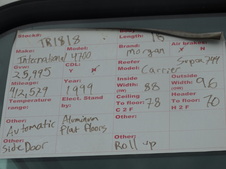 Stock#: TR1818 Length: 18
Make: Model: Brand: Air brakes:
International 4700 Morgan Y N
Gvw: CDL: Reefer
25,995 Y N Model: Carrier Supra 744
Mileage: Year: Inside Outside
412,529 1999 Width: 88 Width: 96
Temperature Elect. Stand Ceiling Height:
range: by: To floor: 78 To floor: 70
C 2 F H 2 F
Other: Other: Other:
Automatic Aluminum
Side Door Plat Floors Roll up